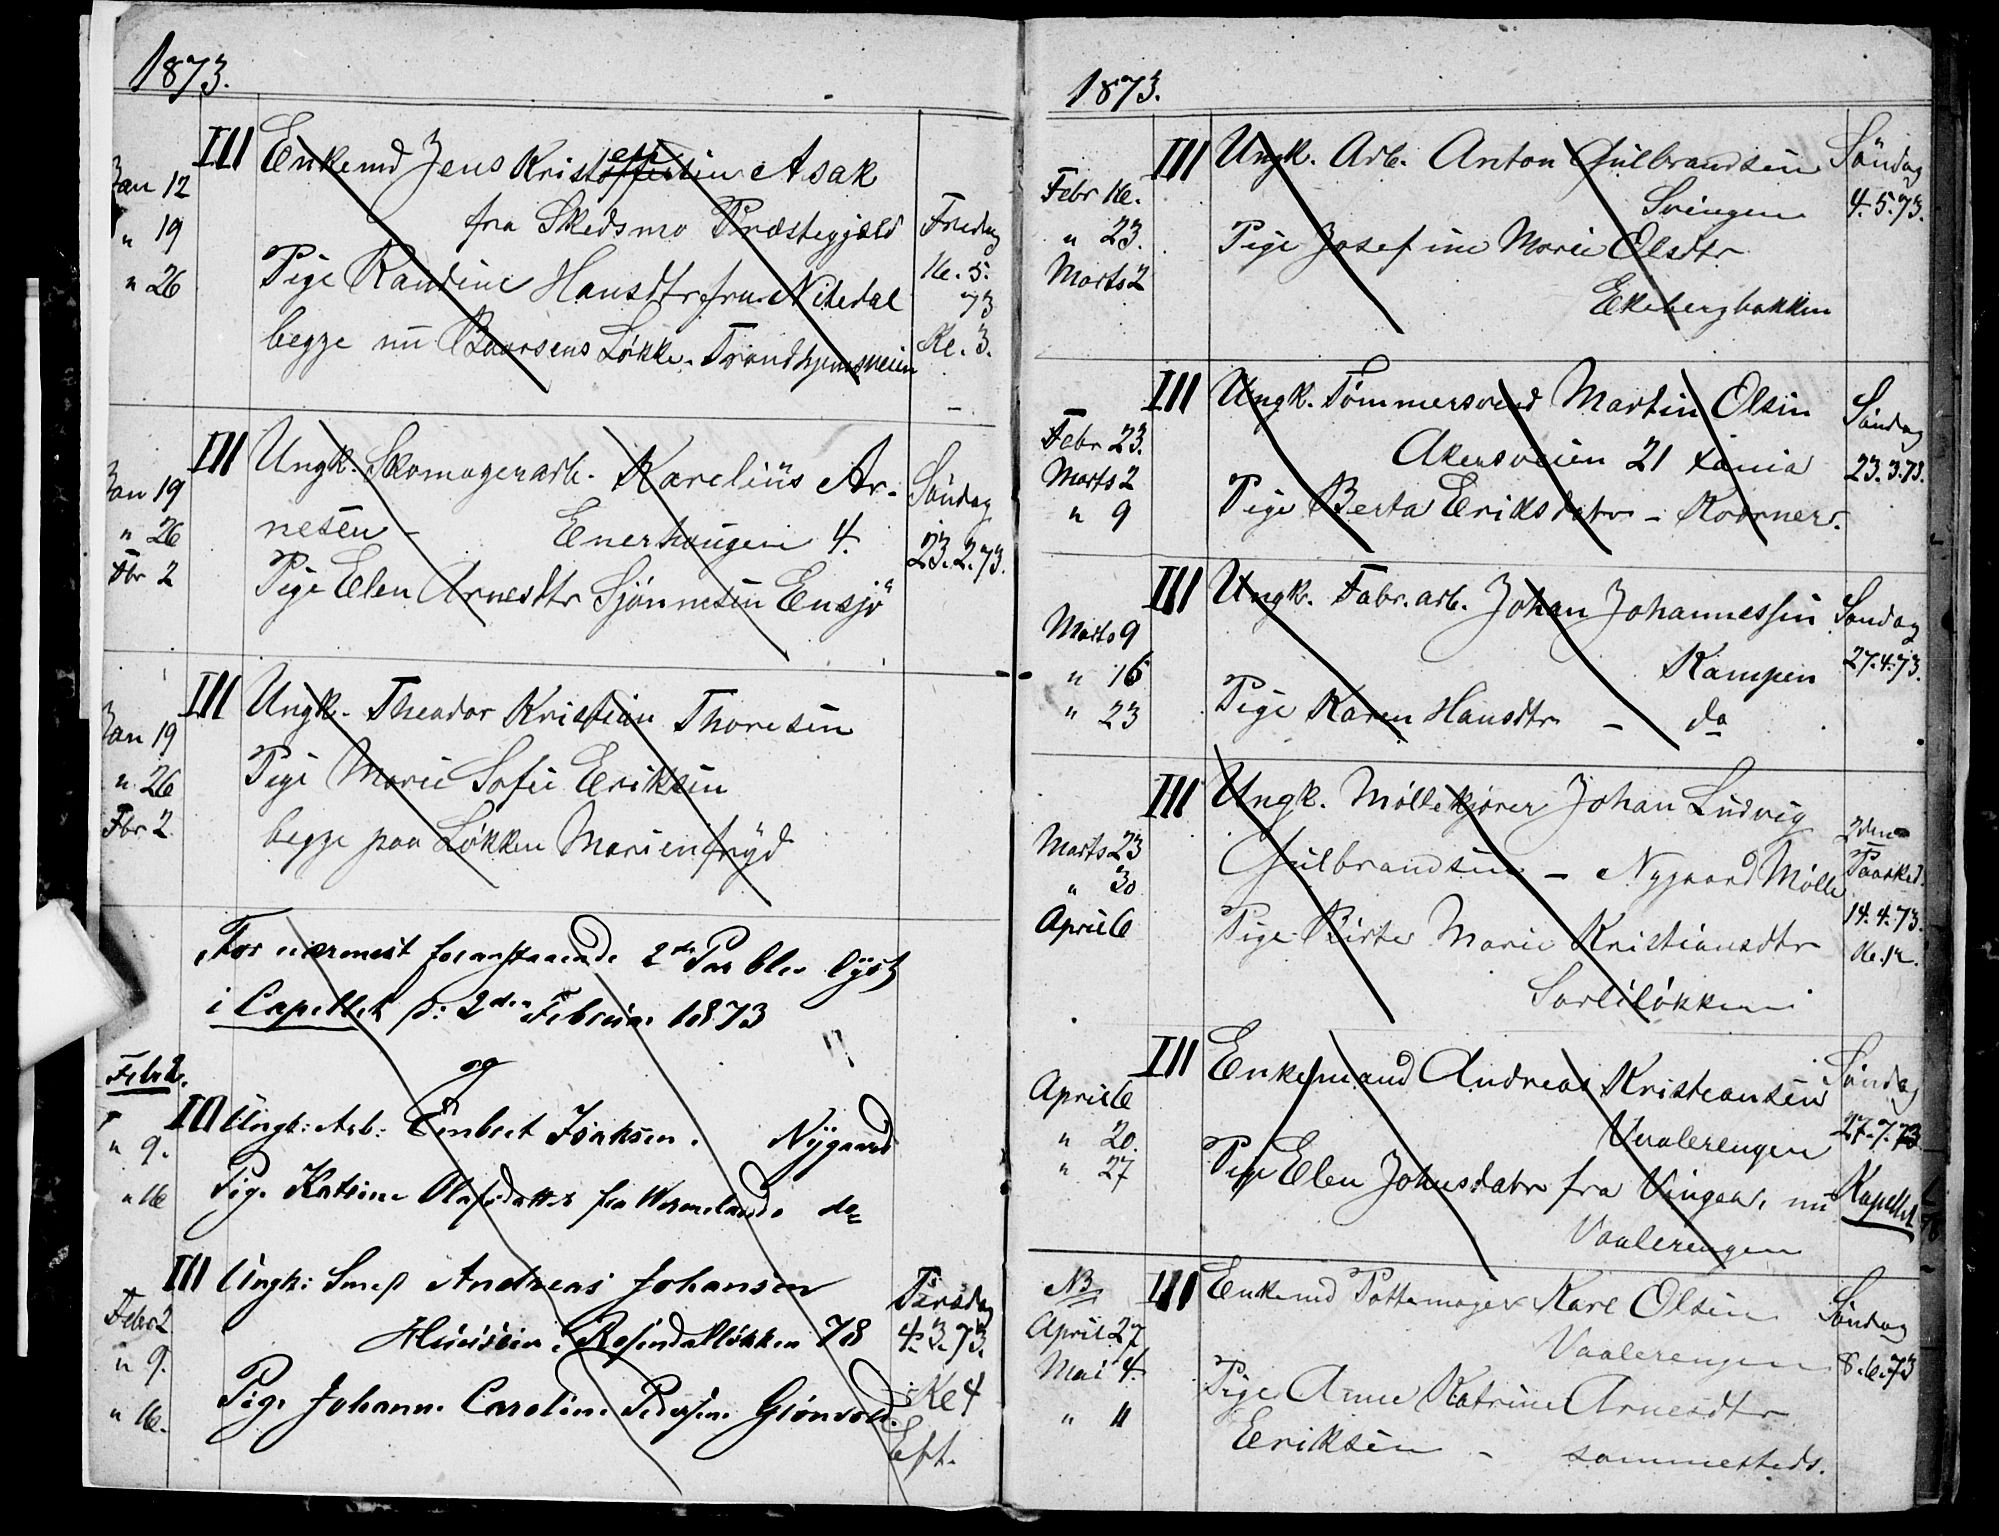 1873.
Jan 12
" 19
" 26
III Enkemd Jens Kristensen Asak
fra Skedsmo Præstegjæld
Pige Randine Hansdtr fra Nitedal
begge nu Løkke. Trondhjemsveien
Fredag
16. 5.
73
Kl. 3.
Jan 19
" 26
Fbr 2
III Ungk. Skomagerarb. Karelius Ar-
nesen - Enerhaugen 4.
Pige Elen Arnesdtr Sjønnesen Ensjø
Søndag
23. 2. 73.
Jan 19
" 26
Fbr 2.
III Ungk. Theodor Kristian Thoresen
Pige Marie Sofie Eriksen
begge paa Løkken Marienfryd
For nærmest foranstaaende 2de Par blev lyst
i Capellet d: 2den Februar 1873
og
Febr 2.
" 9.
" 16
III Ungk: Arb: Embret Isaksen. Nygaard
Pige Katrine Olafsdatter fra Wermeland do
Febr 2
" 9.
" 16.
III Ungk: Smed Andreas Johansen
Rosendalløkken 78
Pige Johanne Caroline Pedersen Grönvold.
Tirsdag
4. 3. 73.
Kl 4
Eft.
1873.
Febr 16.
" 23.
Marts 2
III Ungk. Arb. Anton Gulbrandsen
Svingen
Pige Josefine Marie Olsdtr
Ekebergbakken
Søndag
4. 5. 73.
Febr 23.
Marts 2
" 9
III Ungk. Tømmersvend Martin Olsen
Akersveien 21 Xania
Pige Berta Eriksdatr - Kværner.
Søndag
23. 3. 73.
Marts 9
" 16
" 23
III Ungk. Fabr. arb. Johan Johannessen
Kampen
Pige Karen Hansdtr - do
Søndag
27. 4. 73.
Marts 23
" 30
April 6
III Ungk. Møllekjører Johan Ludvig
Gulbrandsen - Nygaard Mølle
Pige Birte Marie Kristiansdtr
Sorliløkken
2den
Paasked.
14. 4. 73.
Kl. 12.
April 6
" 20.
" 27
III Enkemand Andreas Kristiansen
Vaalerengen
Pige Elen Johnsdatr fra Vinger, nu
Vaalerengen
Søndag
27. 7. 73
Kapellet
NB
April 27
Mai 4.
" 11
III Enkemd Pottemager Karl Olsen
Vaalerengen
Pige Anne Katrine Arnesdtr
Eriksen - sammesteds.
Søndag
8. 6. 73